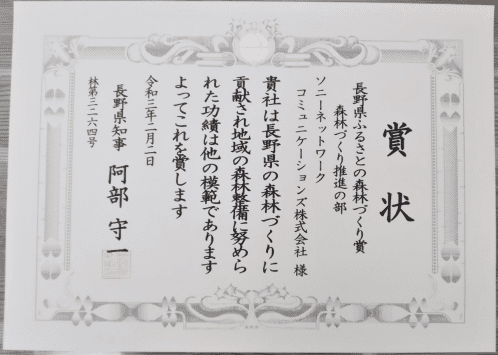 賞状
長野県ふるさとの森林づくり賞
森林づくり推進の部
ソニーネットワーク
コミュニケーションズ株式会社 様
貴社は長野県の森林づくりに
貢献され地域の森林整備に努めら
れた功績は他の模範であります
よってこれを賞します
令和三年二月二日
長野県知事 阿部守一
林第三二六四号